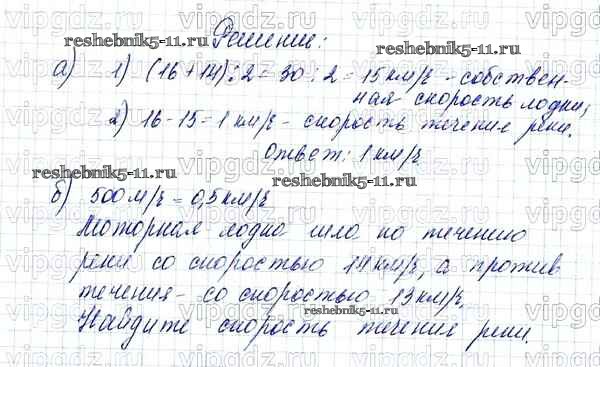 Решение:
а) 1) (16 + 14) : 2 = 30 : 2 = 15 км/ч - собствен-
ная скорость лодки;
2) 16 - 15 = 1 км/ч - скорость течения реки.
Ответ: 1 км/ч
б) 500 м/ч = 0,5 км/ч
Моторная лодка шла по течению
реки со скоростью 14 км/ч, а против
течения - со скоростью 13 км/ч.
Найдите скорость течения реки.
reshebnik5-11.ru
reshebnik5-11.ru
reshebnik5-11.ru
reshebnik5-11.ru
reshebnik5-11.ru
reshebnik5-11.ru